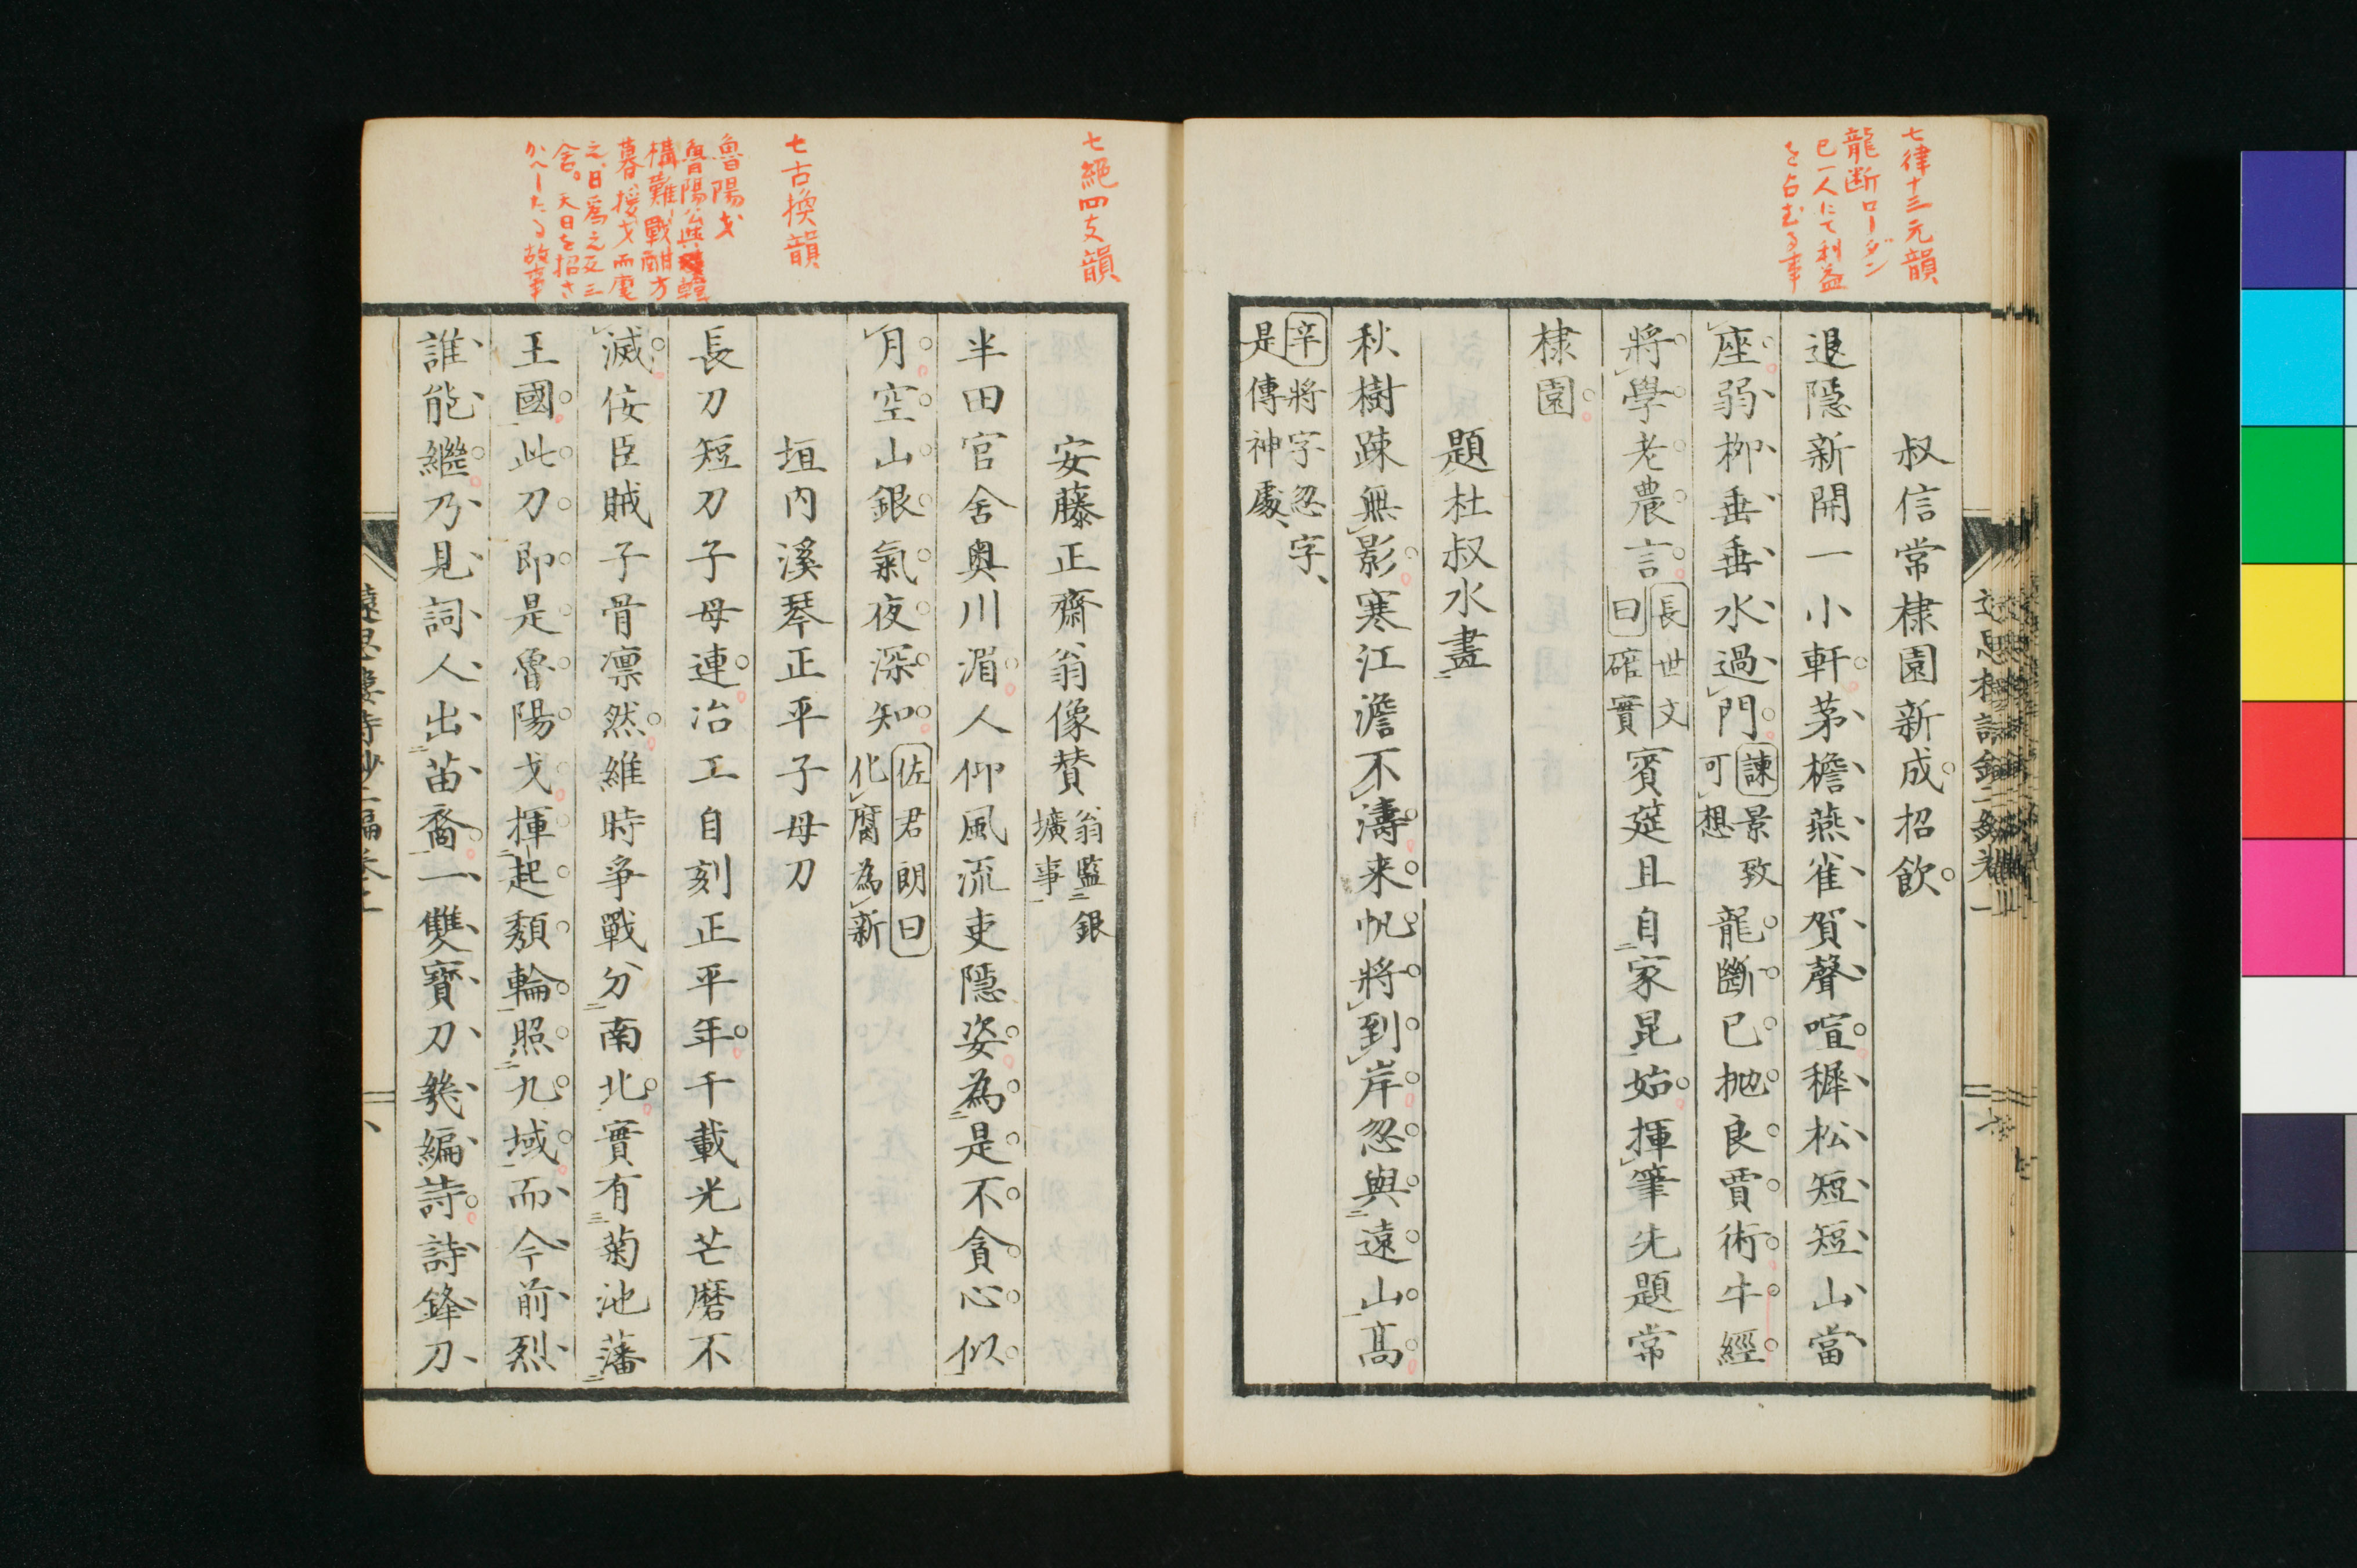 七律十三元韻
龍断ローダン
已一人にて利益
を占むる事
叔信常棣園新成招飲
退隱新開一小軒茅檐燕雀賀聲喧穉松短短山當
座弱栁垂垂水過門諫景致可想龍斷已抛良賈術牛經
將學老農言長世文曰確實賓筵且自家昆始揮筆先題常
棣園
題杜叔水畫
秋樹踈無影寒江澹不濤来帆將到岸忽與遠山高
辛將字忽字
是傳神處
七絕四支韻
安藤正齋翁像賛翁監銀壙事
半田官舍奥川湄人仰風流吏隱姿為是不貪心似
月空山銀氣夜深知佐君朗曰化腐為新
七古換韻
垣内溪琴正平子母刀
魯陽戈
魯陽公與韓
構難戰酣方
暮援戈而麾
之日為之反三
舍。天日を招き
かへしたる故事
長刀短刀子母連冶工自刻正平年千載光芒磨不
滅侫臣賊子骨凛然維時爭戰分南北實有菊池藩
王國此刀即是魯陽戈揮起頽輪照九域而今前烈
誰能繼乃見詞人出苗裔一雙寶刀幾編詩詩鋒刀
遠思樓詩鈔二編卷上